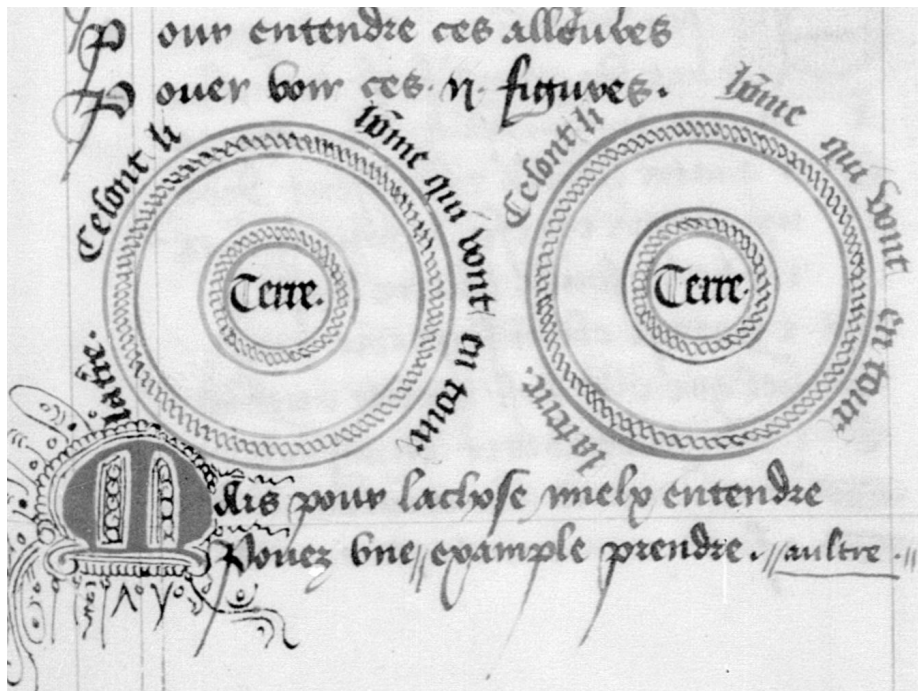 Pour entendre ces
Pouer voir ces .ii. figures.
Ce sont li hōme qui vont en tour la terre.
Terre.
Ce sont li hōme qui vont en tour la terre.
Terre.
Mais pour la chose mielx entendre
Pouez vne // example prendre. // aultre . //